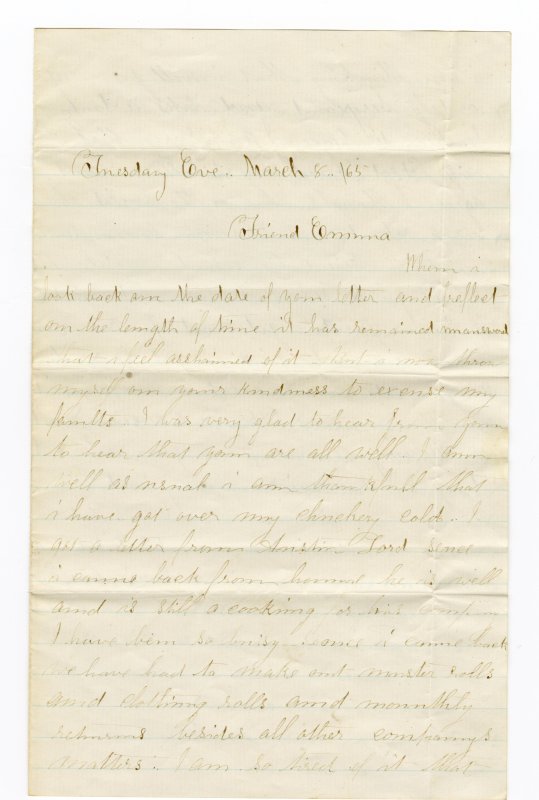 Tuesday Eve.. March 8.. /65
Friend Emma
When i
look back on the date of your letter and reflect
on the length of time it has remained
that i feel asshamed of it But i now throw
myself on your kindness to excuse my
faults.. I was very glad to hear from you
to hear that you are all well.. I am
well as usual i am thankfull that
i have got over my cold.. I
got a letter from Austin Ford sence
i came back from home he is well
and is still a cooking for his company
I have bin so busy sence i came back
we have had to make out muster rolls
and clothing rolls and monnthly
returns besides all other companys
matters.. I am so tired of it that